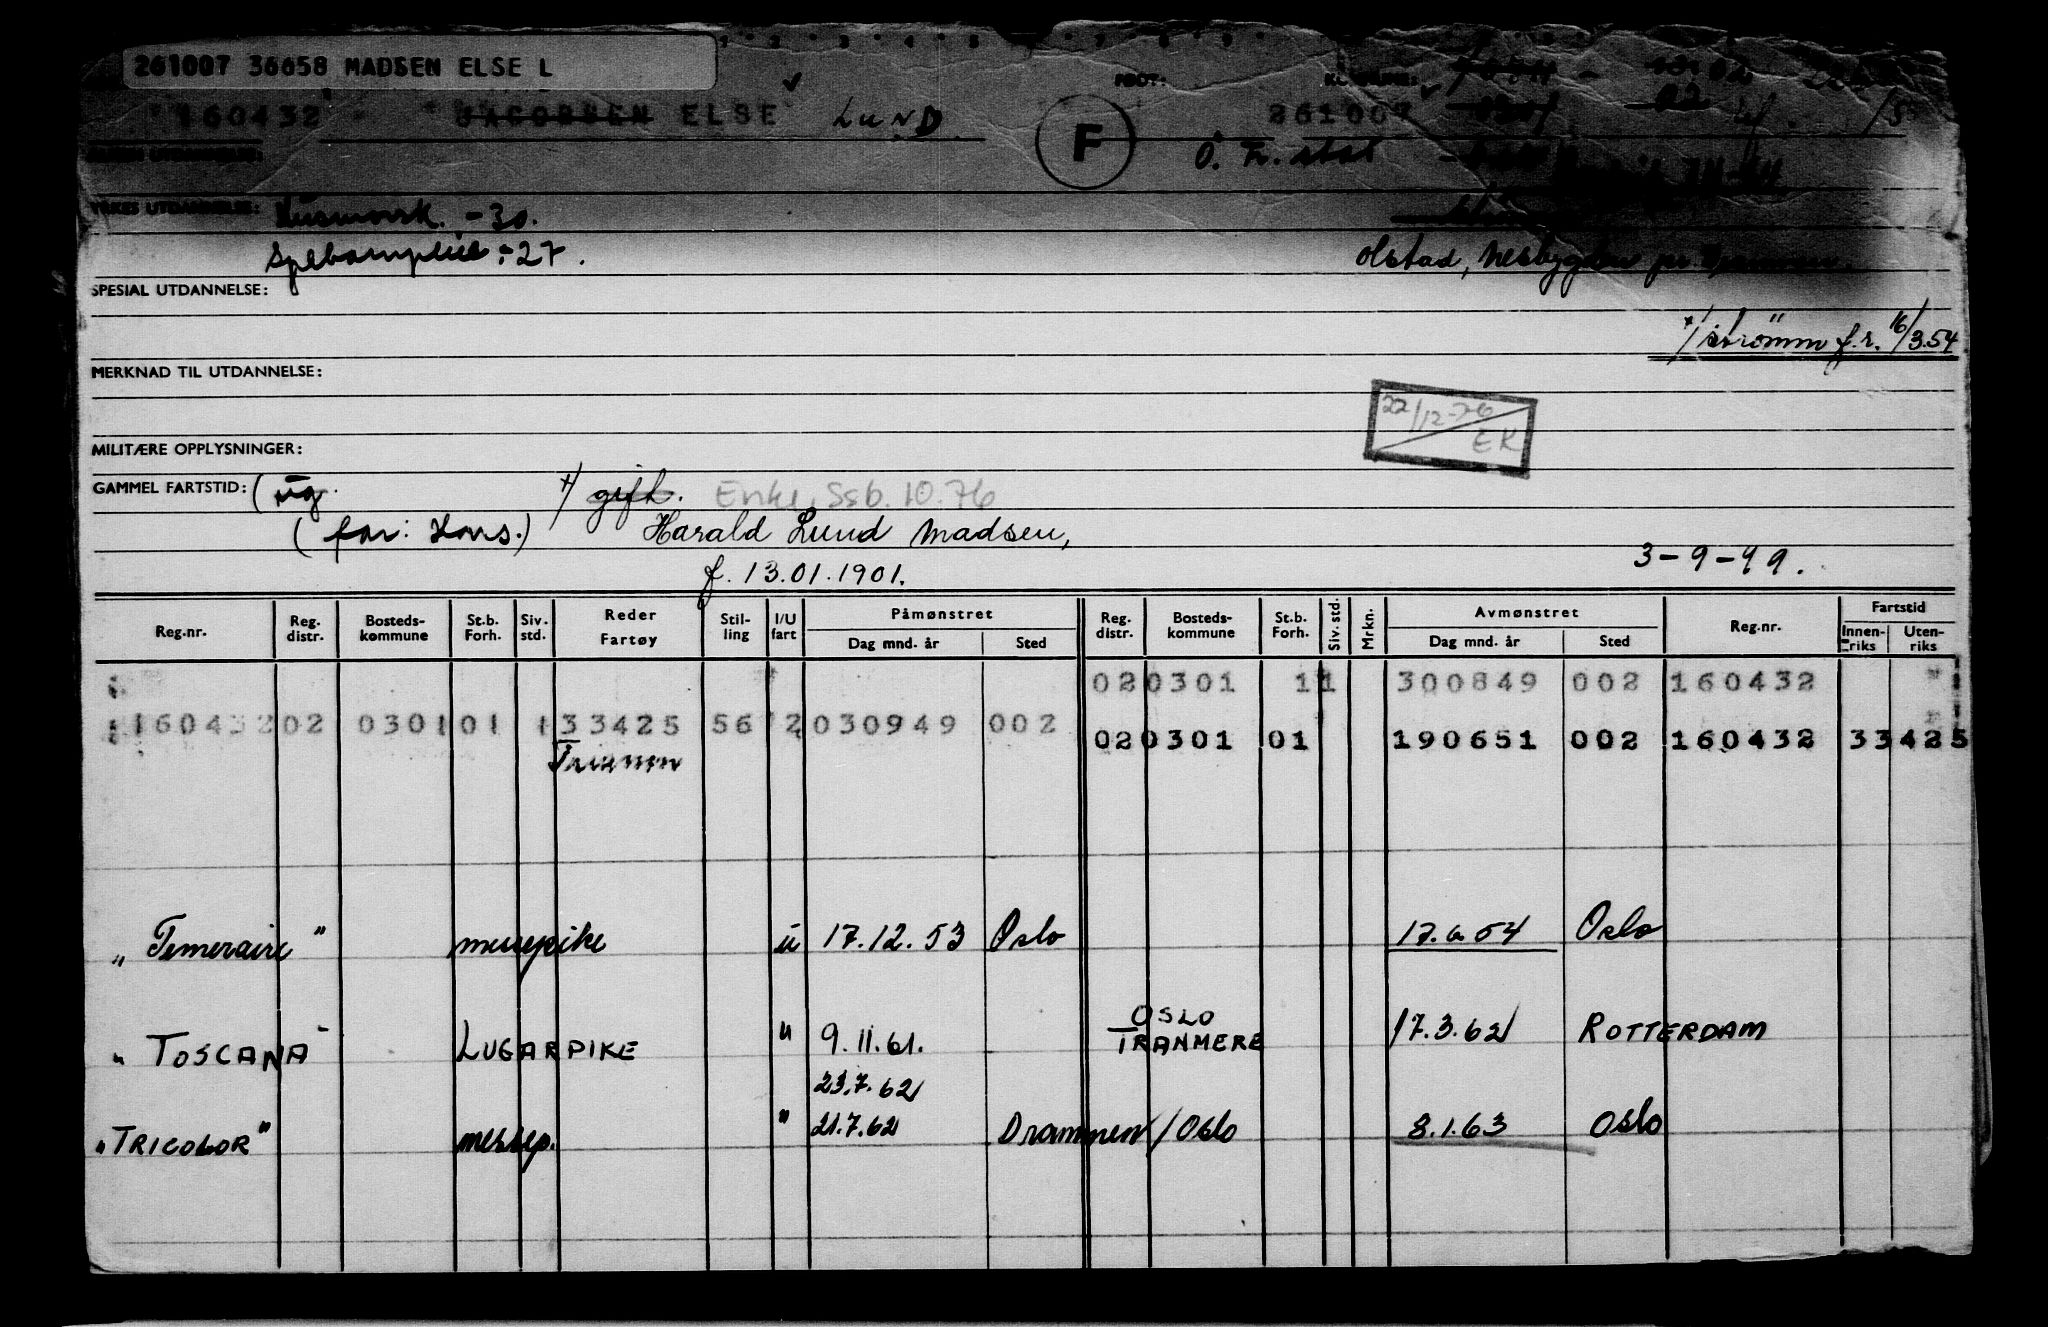 261007 36658 MADSEN ELSE L
160432 JACOBSEN ELSE LUND
FØDT: 261007
F
Ö. Fr. stat
YRKES UTDANNELSE: Husmorsk. -30.
-27.
Olstad, Nesbygden pr
SPESIAL UTDANNELSE:
f.r. 16/3.54
MERKNAD TIL UTDANNELSE:
22/12-76
EK
MILITÆRE OPPLYSNINGER:
GAMMEL FARTSTID: (ug. +/ gift. Enke, Ssb. 10.76
(far: Hans.) Harald Lund Madsen,
f. 13.01.1901.
3-9-49.
Reg.nr. Reg. distr. Bosteds-kommune St.b. Forh. Siv. std. Reder Fartøy Stil-ling I/U fart Påmønstret Dag mnd. år Sted Reg. distr. Bosteds-kommune St.b. Forh. Siv. std. Mrkn. Avmønstret Dag mnd. år Sted Reg.nr. Fartstid Innen-riks Uten-riks
020301 11 300849 002 160432
160432 02 0301 01 1 33425 56 2 030949 002
020301 01 190651 002 160432 33425
Trianon
"Temeraire" messepike u 17.12.53 Oslo 17.6.54 Oslo
"TOSCANA" LUGARPIKE " 9.11.61. OSLO
TRANMERE 17.3.62 ROTTERDAM
23.7.62
"TRICOLOR" messep. " 21.7.62 Drammen/Oslo 8.1.63 Oslo